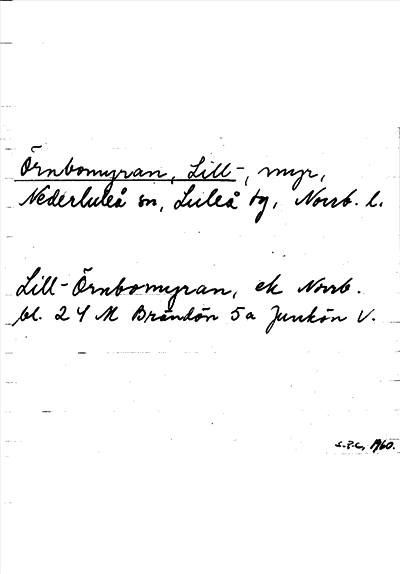 Örnbomyran, Lill-, myr,
Nederluleå sn, Luleå tg, Norrb. l.
Lill-Örnbomyran, ek Norrb.
bl. 24 M Brändön 5a Junkön V.
S.P.C. 1960.